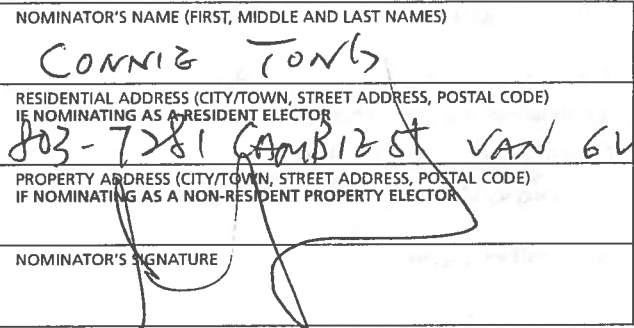 NOMINATOR'S NAME (FIRST, MIDDLE AND LAST NAMES)
CONNIE TONG
RESIDENTIAL ADDRESS (CITY/TOWN, STREET ADDRESS, POSTAL CODE)
IF NOMINATING AS A RESIDENT ELECTOR
803-7281 CAMBIE St VAN
PROPERTY ADDRESS (CITY/TOWN, STREET ADDRESS, POSTAL CODE)
IF NOMINATING AS A NON-RESIDENT PROPERTY ELECTOR
NOMINATOR'S SIGNATURE